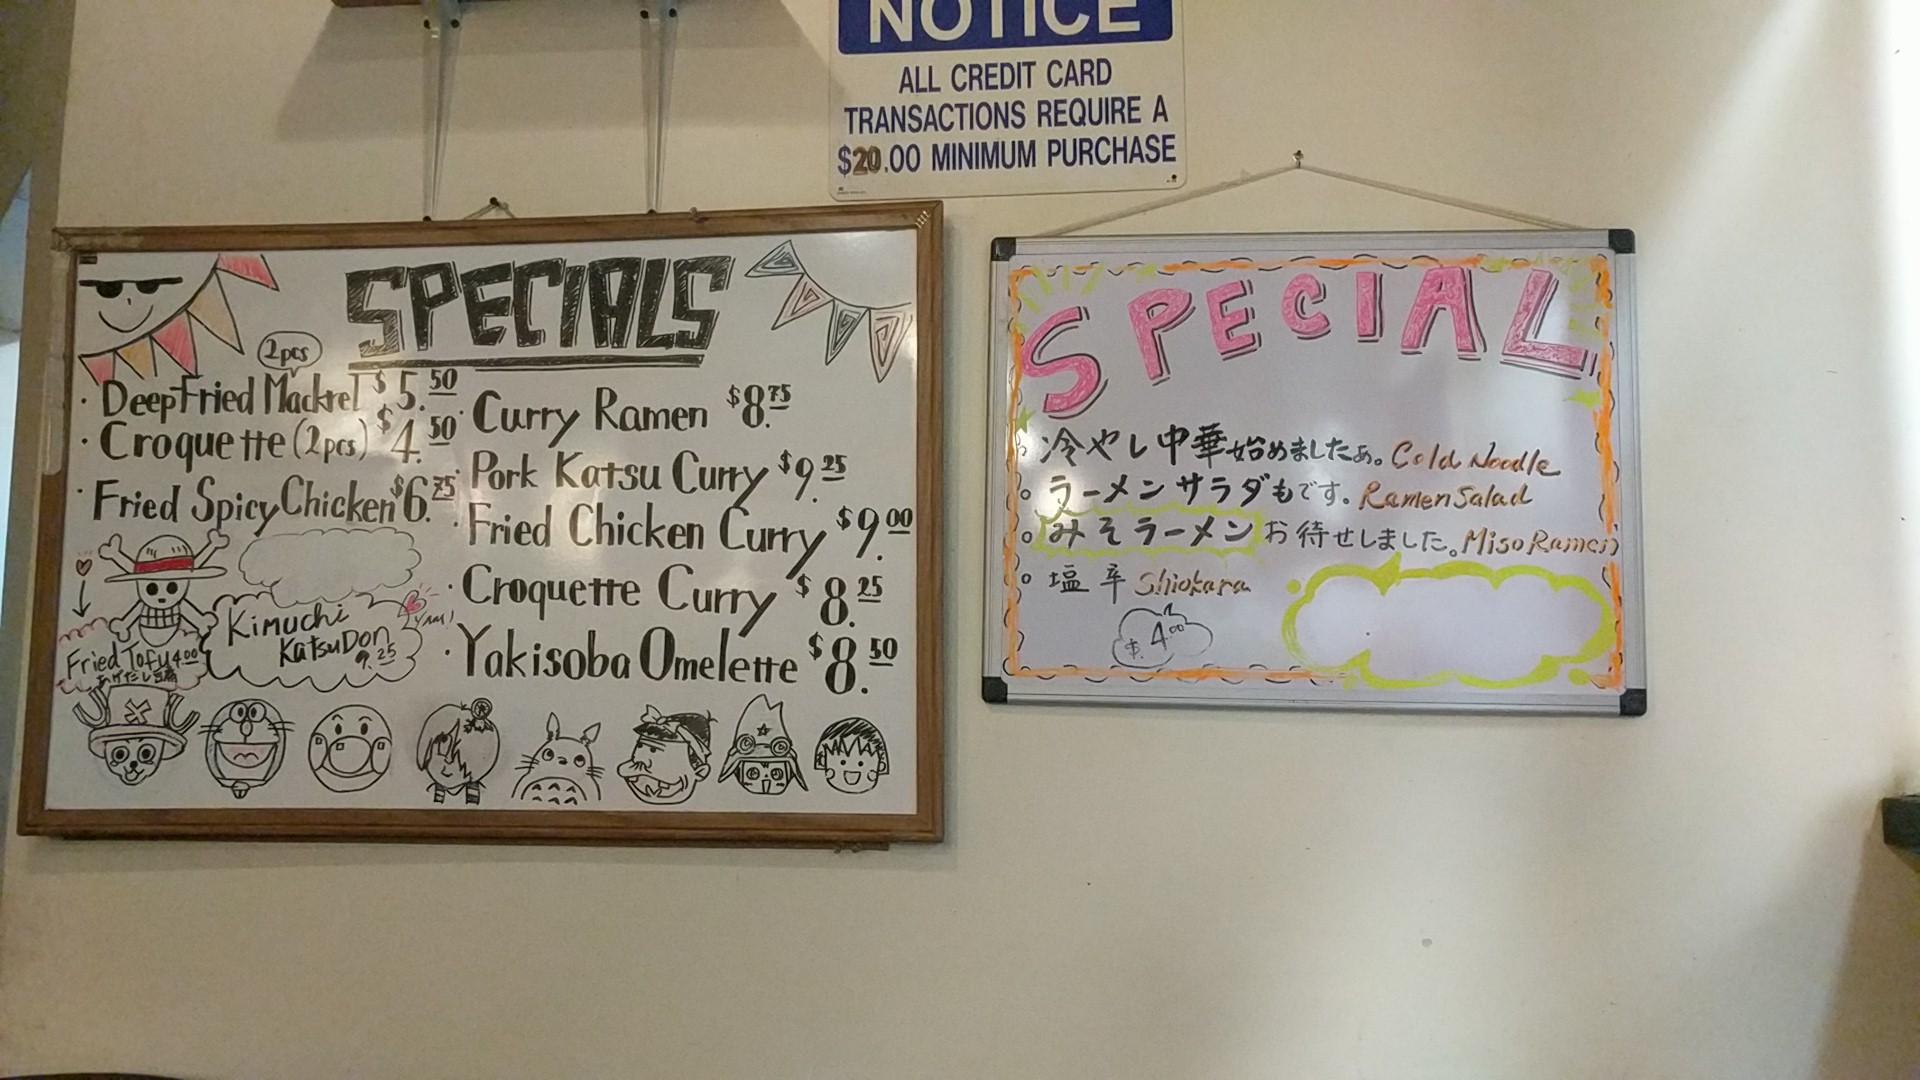 NOTICE
ALL CREDIT CARD
TRANSACTIONS REQUIRE A
$20.00 MINIMUM PURCHASE
SPECIALS
2pcs
· DeepFried Mackrel $5.50
· Croquette (2pcs) $4.50
· Fried Spicy Chicken $6.75
· Curry Ramen $8.75
· Pork Katsu Curry $9.25
· Fried Chicken Curry $9.00
· Croquette Curry $8.25
· Yakisoba Omelette $8.50
Kimuchi
KatsuDon
9.25
Yum!
Fried Tofu 4.00
あげだし豆腐
SPECIAL
冷やし中華始めましたぁ。Cold Noodle
ラーメンサラダもです。Ramen Salad
みそラーメンお待せしました。Miso Ramen
塩辛 Shiokara
$4.00